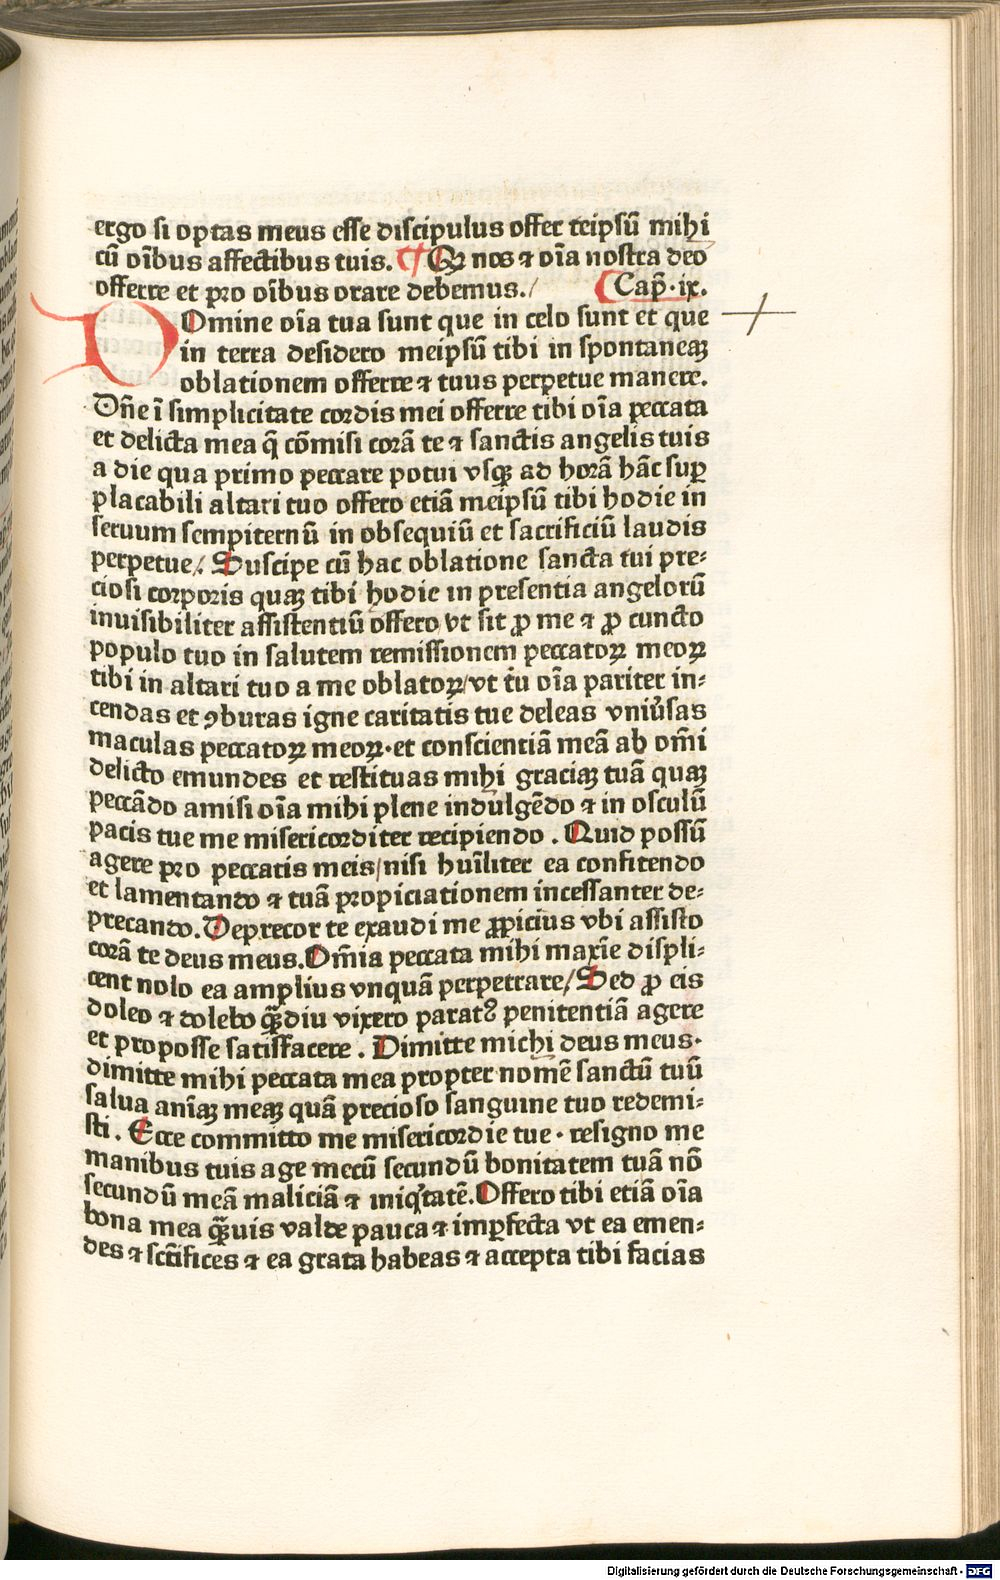 ergo si optas meus esse discipulus offer teipsū mihi
cū oībus affectibus tuis. ¶ Qꝫ nos ⁊ oīa nostra deo
offerre et pro oībus orare debemus./ ¶ Cap̄·ix.
DOmine oīa tua sunt que in celo sunt et que
in terra desidero meipsū tibi in spontaneaꝫ
oblationem offerre ⁊ tuus perpetue manere.
Dn̄e ī simplicitate cordis mei offerre tibi oīa peccata
et delicta mea q̄ cōmisi corā te ⁊ sanctis angelis tuis
a die qua primo peccare potui vsqꝫ ad horā hāc suꝑ
placabili altari tuo offero etiā meipsū tibi hodie in
seruum sempiternū in obsequiū et sacrificiū laudis
perpetue/. Suscipe cū hac oblatione sancta tui pre-
ciosi corporis quaꝫ tibi hodie in presentia angelorū
inuisibiliter assistentiū offero vt sit ꝓ me ⁊ ꝓ cuncto
populo tuo in salutem remissionem peccatoꝝ meoꝝ
tibi in altari tuo a me oblatoꝝ/vt tu̇ oīa pariter in-
cendas et ꝯburas igne caritatis tue deleas vniu̇sas
maculas peccatoꝝ meoꝝ·et conscientiā meā ab om̄i
delicto emundes et restituas mihi graciaꝫ tuā quaꝫ
peccādo amisi oīa mihi plene indulgēdo ⁊ in osculū
pacis tue me misericorditer recipiendo . Quid possū
agere pro peccatis meis/nisi huīliter ea confitendo
et lamentando ⁊ tuā propiciationem incessanter de-
precando. Deprecor te exaudi me ꝓpicius vbi assisto
corā te deus meus. Om̄ia peccata mihi maxīe displi-
cent nolo ea amplius vnquā perpetrare/ Sed ꝓ eis
doleo ⁊ dolebo qꝫ̄diu vixero paratꝰ penitentiā agere
et pro posse satisfacere . Dimitte michi deus meus·
dimitte mihi peccata mea propter nomē sanctū tuū
salua anīaꝫ meaꝫ quā precioso sanguine tuo redemi-
sti . Ecce committo me misericordie tue · resigno me
manibus tuis age mecū secundū bonitatem tuā nō
secundū meā maliciā ⁊ iniqͥtatē. Offero tibi etiā oīa
bona mea qꝫ̄uis valde pauca ⁊ imꝑfecta vt ea emen-
des ⁊ sctīfices ⁊ ea grata habeas ⁊ accepta tibi facias
Digitalisierung gefördert durch die Deutsche Forschungsgemeinschaft - DFG